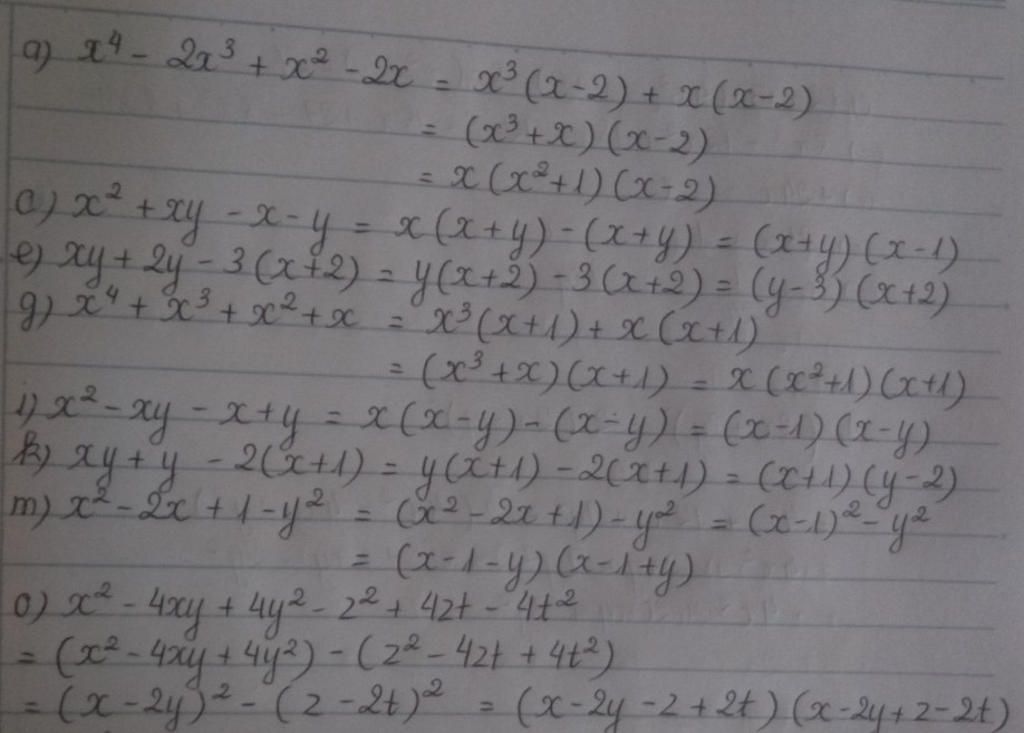 a) x⁴ - 2x³ + x² - 2x = x³(x-2) + x(x-2)
= (x³+x)(x-2)
= x(x²+1)(x-2)
c) x² + xy - x - y = x(x+y) - (x+y) = (x+y)(x-1)
e) xy + 2y - 3(x+2) = y(x+2) - 3(x+2) = (y-3)(x+2)
g) x⁴ + x³ + x² + x = x³(x+1) + x(x+1)
= (x³+x)(x+1) = x(x²+1)(x+1)
i) x² - xy - x + y = x(x-y) - (x-y) = (x-1)(x-y)
k) xy + y - 2(x+1) = y(x+1) - 2(x+1) = (x+1)(y-2)
m) x² - 2x + 1 - y² = (x² - 2x + 1) - y² = (x-1)² - y²
= (x-1-y)(x-1+y)
o) x² - 4xy + 4y² - z² + 4zt - 4t²
= (x² - 4xy + 4y²) - (z² - 4zt + 4t²)
= (x-2y)² - (z-2t)² = (x-2y-z+2t)(x-2y+z-2t)